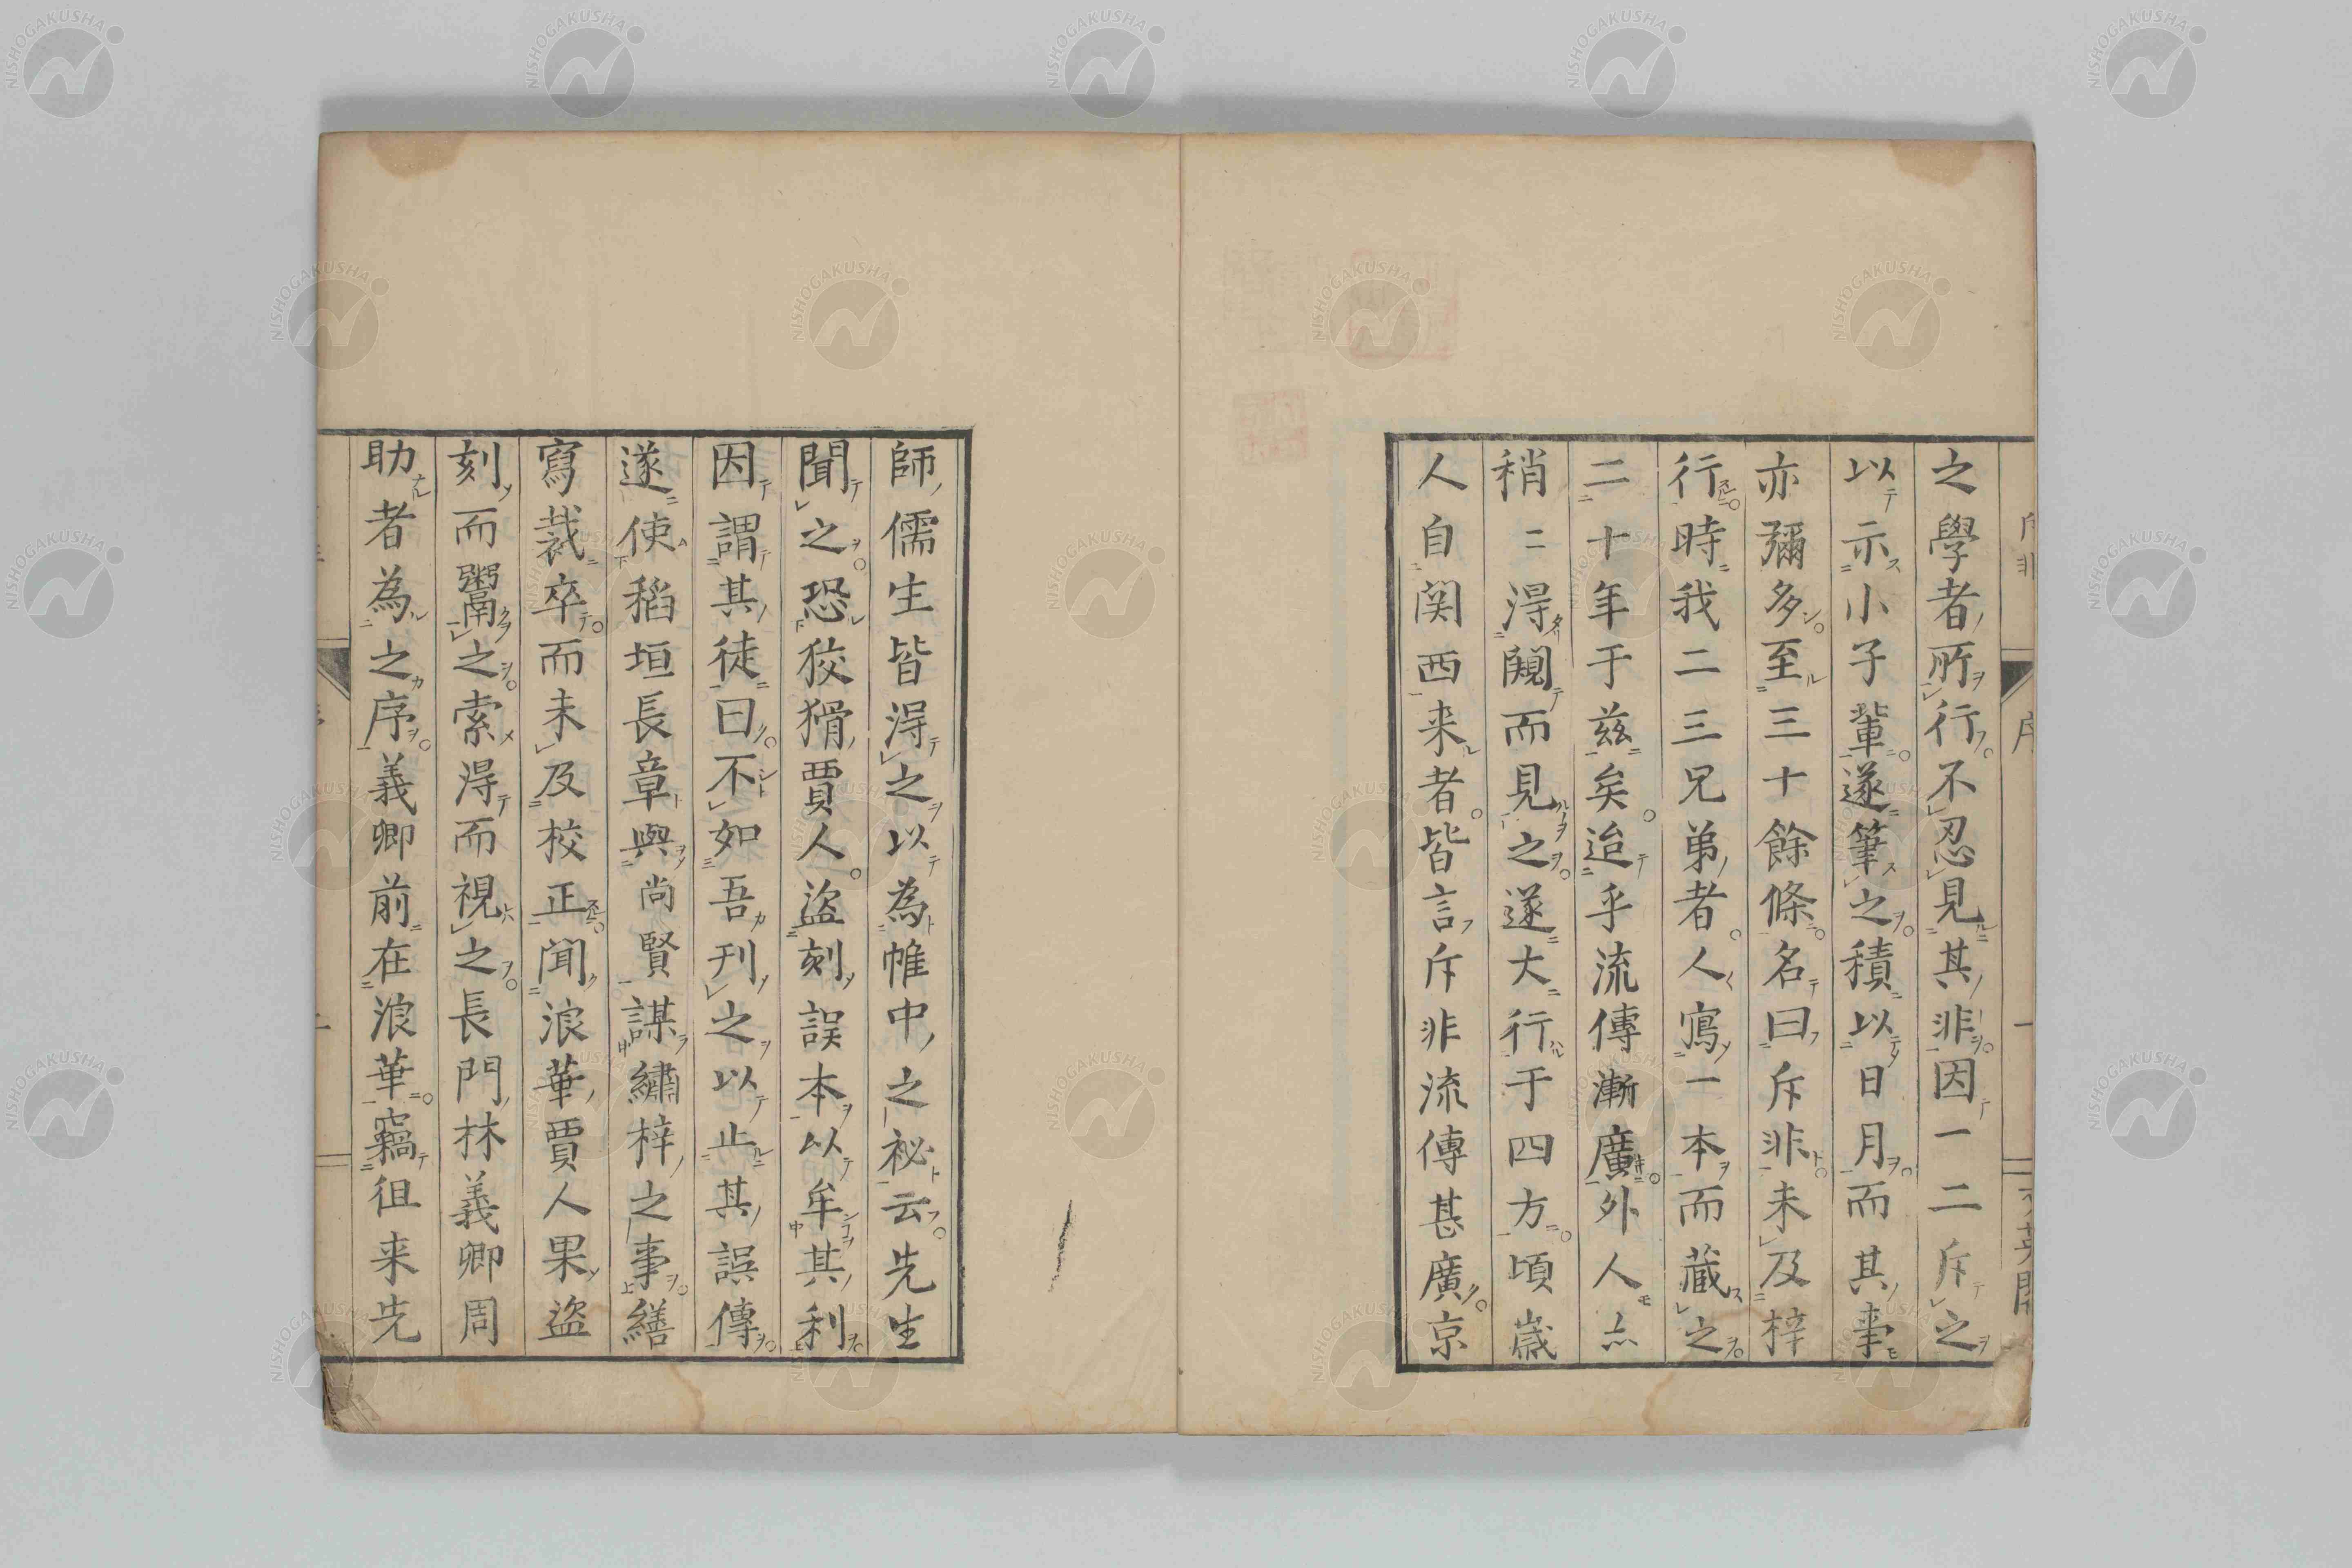 之學者所行不忍見其非因一二斥之
以示小子輩遂筆之積以日月而其事
亦彌多至三十餘條名曰斥非未及梓
行時我二三兄弟者人寫一本而藏之
二十年于茲矣迨乎流傳漸廣外人亦
稍二淂闚而見之遂大行于四方頃歳
人自関西来者皆言斥非流傳甚廣京
師儒生皆淂之以為帷中之祕云先生
聞之恐狡猾賈人盜刻誤本以牟其利
因謂其徒曰不如吾刊之以止其誤傳
遂使稻垣長章與尚賢謀繡梓之事繕
寫裁卒而未及校正聞浪華賈人果盜
刻而鬻之索淂而視之長門林義卿周
助者為之序義卿前在浪華竊徂来先
序
NISHOGAKUSHA